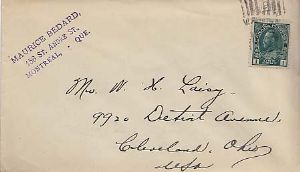 MAURICE BEDARD,
159 ST. ANDRE ST.
MONTREAL, - QUE.
Mr. W. H. Laisy.
9920 Detroit Avenue,
Cleveland, Ohio
USA